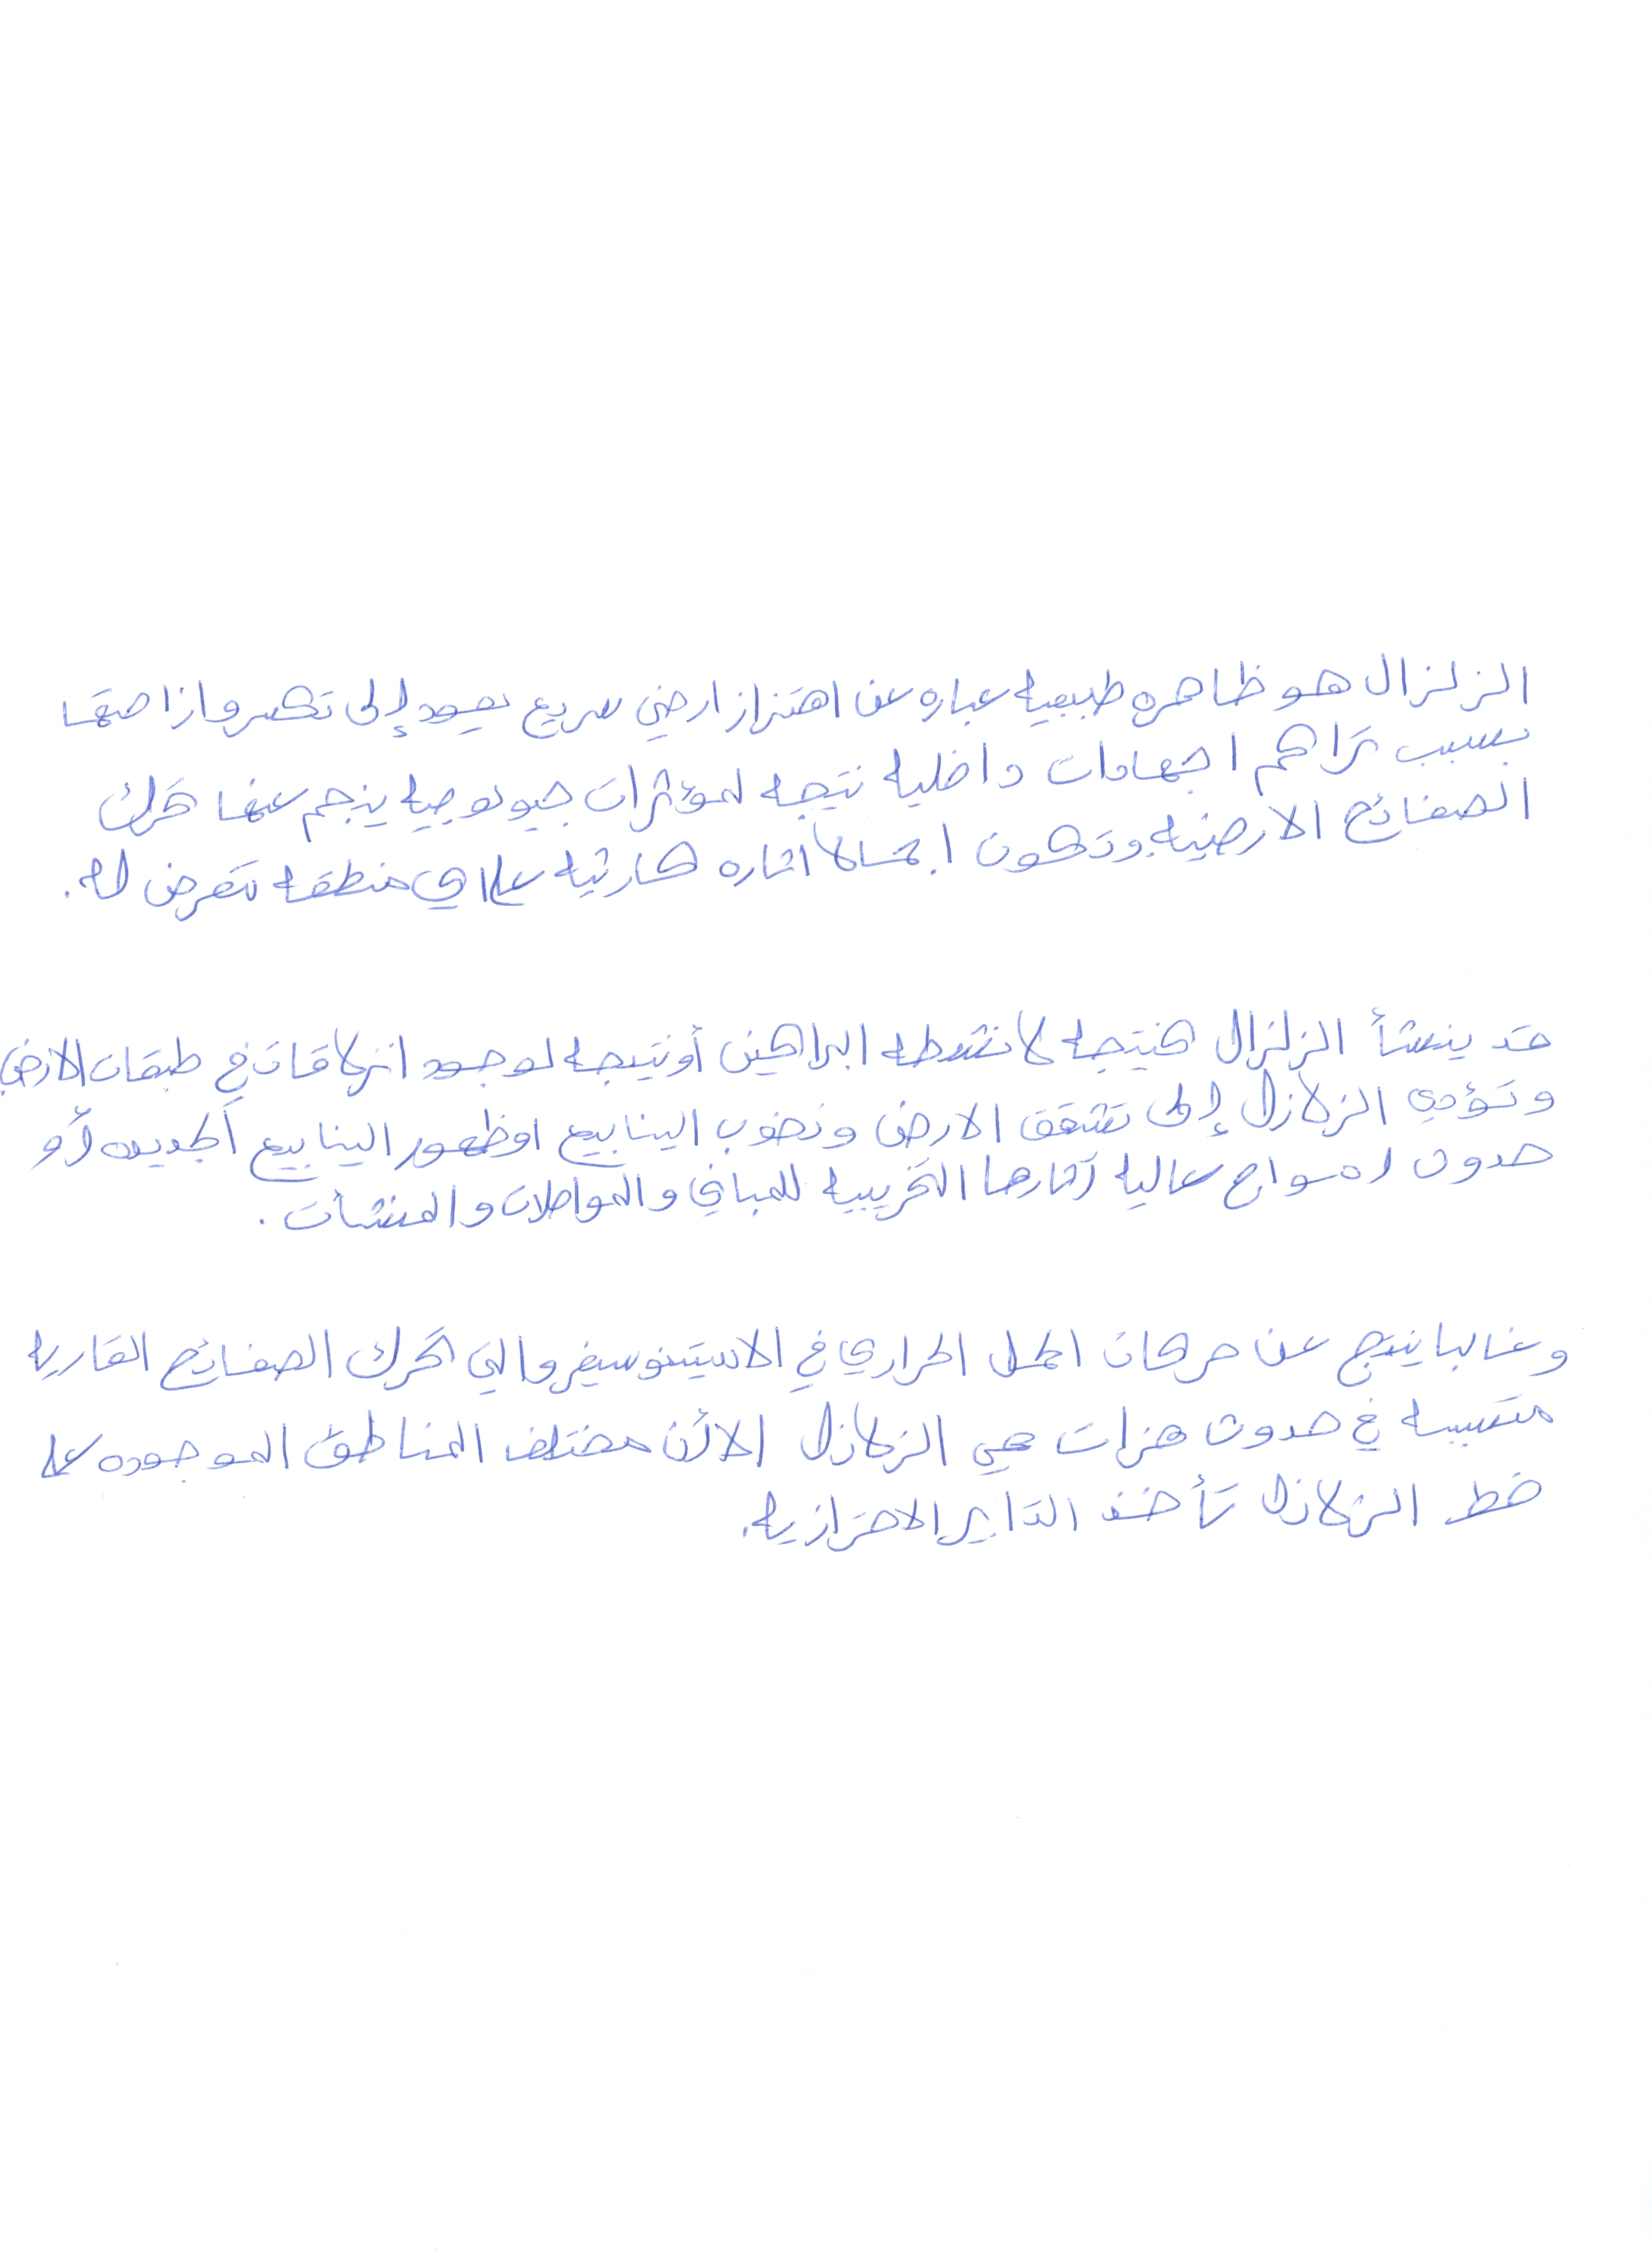 الزلزال هو ظاهره طبيعيه عباره عن اهتزاز ارضي سريع يعود إلى تكسر وازاحتها
بسبب تراكم اجهادات داخليه نتيجه لمؤثرات جيولوجيه ينجم عنها تحرك
الصفائح الارضيه وتكون اجمالا اثاره كارثيه على اي منطقه تتعرض له.
قد ينشأ الزلزال كنتيجه لانشطه البراكين أو نتيجه لوجود انزلاقات في طبقات الارض
وتؤدي الزلازل إلى تشقق الارض ونضوب الينابيع او ظهور الينابيع الجديده أو
حدوث امواج عاليه آثارها التخريبيه للمباني والمواصلات والمنشآت.
وغالبا ينتج عن حركات الحمل الحراري في الاسيتنوسفير والتي تحرك الصفائح القاريه
متسببه في حدوث هزات هي الزلازل الآن مختلف المناطق الموجوده على
خط الزلازل تأخذ التدابير الاحترازيه.